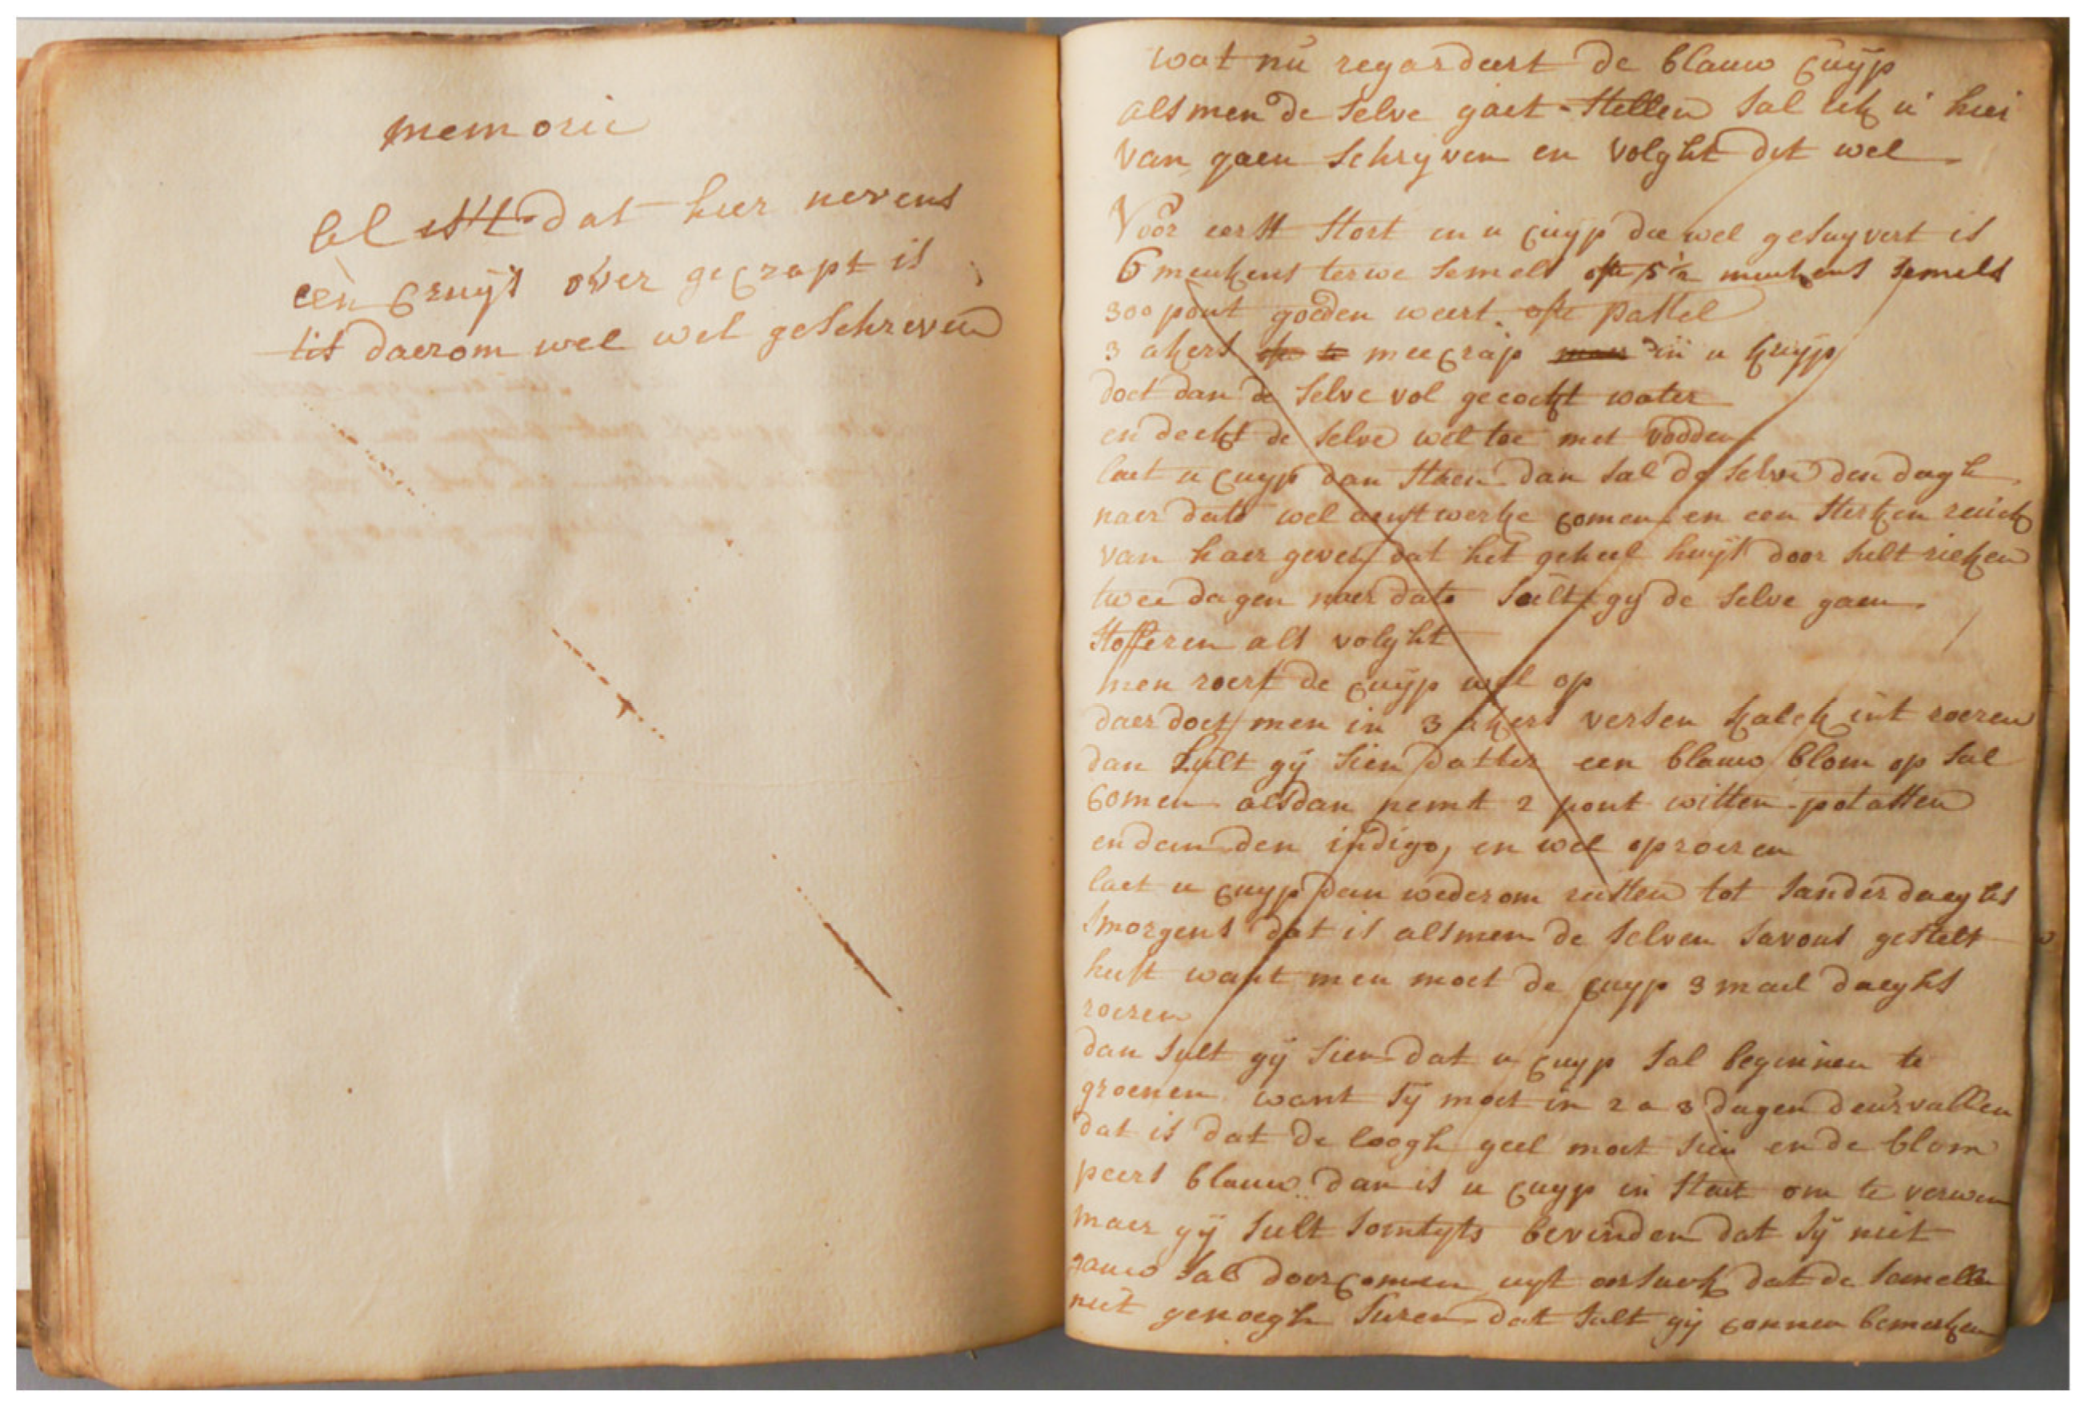 memorie
al ist dat hier nevens
een cruys over gecrapt is
tis daerom wel wel geschreven
wat nu regardeert de blauw cuyp
alsmen de selve gaet stellen sal ick u hier
van gaen schryven en volght dit wel
Voor eerst stort in u cuyp die wel gesuyvert is
6 meukens terwe semels ofte 5 1/2 meukens semels
300 pont goeden weert ofte pastel
3 akers meecrap in u kuyp
doet dan de selve vol gecockt water
en deckt de selve wel toe met vodden
laet u cuyp dan staen dan sal de selve den dagh
naer dato wel aent wercke comen en een stercken reuck
van haer geven dat het geheel huys door sult riecken
twee dagen naer dato sult gy de selve gaen
stofferen als volght
men roert de cuyp wel op
daer doet men in 3 akers versen kalck int roeren
dan sult gÿ sien datter een blauw blom op sal
comen alsdan nemt 2 pont witten potatten
en dan den indigo, en wel oproeren
laet u cuyp dan wederom rusten tot sanderdaeghs
smorgens dat is alsmen de selven savons gestelt
heeft want men moet de cuyp 3 mael daeghs
roeren
dan sult gÿ sien dat u cuyp sal beginnen te
groenen want sÿ moet in 2 a 3 dagen deurvallen
dat is dat de loogh geel moet sien en de blom
peers blauw dan is u cuyp in staet om te verwen
maer gÿ sult somtyts bevinden dat sÿ niet
gauw sal doorcomen uyt oorsaeck dat de semellen
niet genoegh suren dat sult gÿ connen bemercken